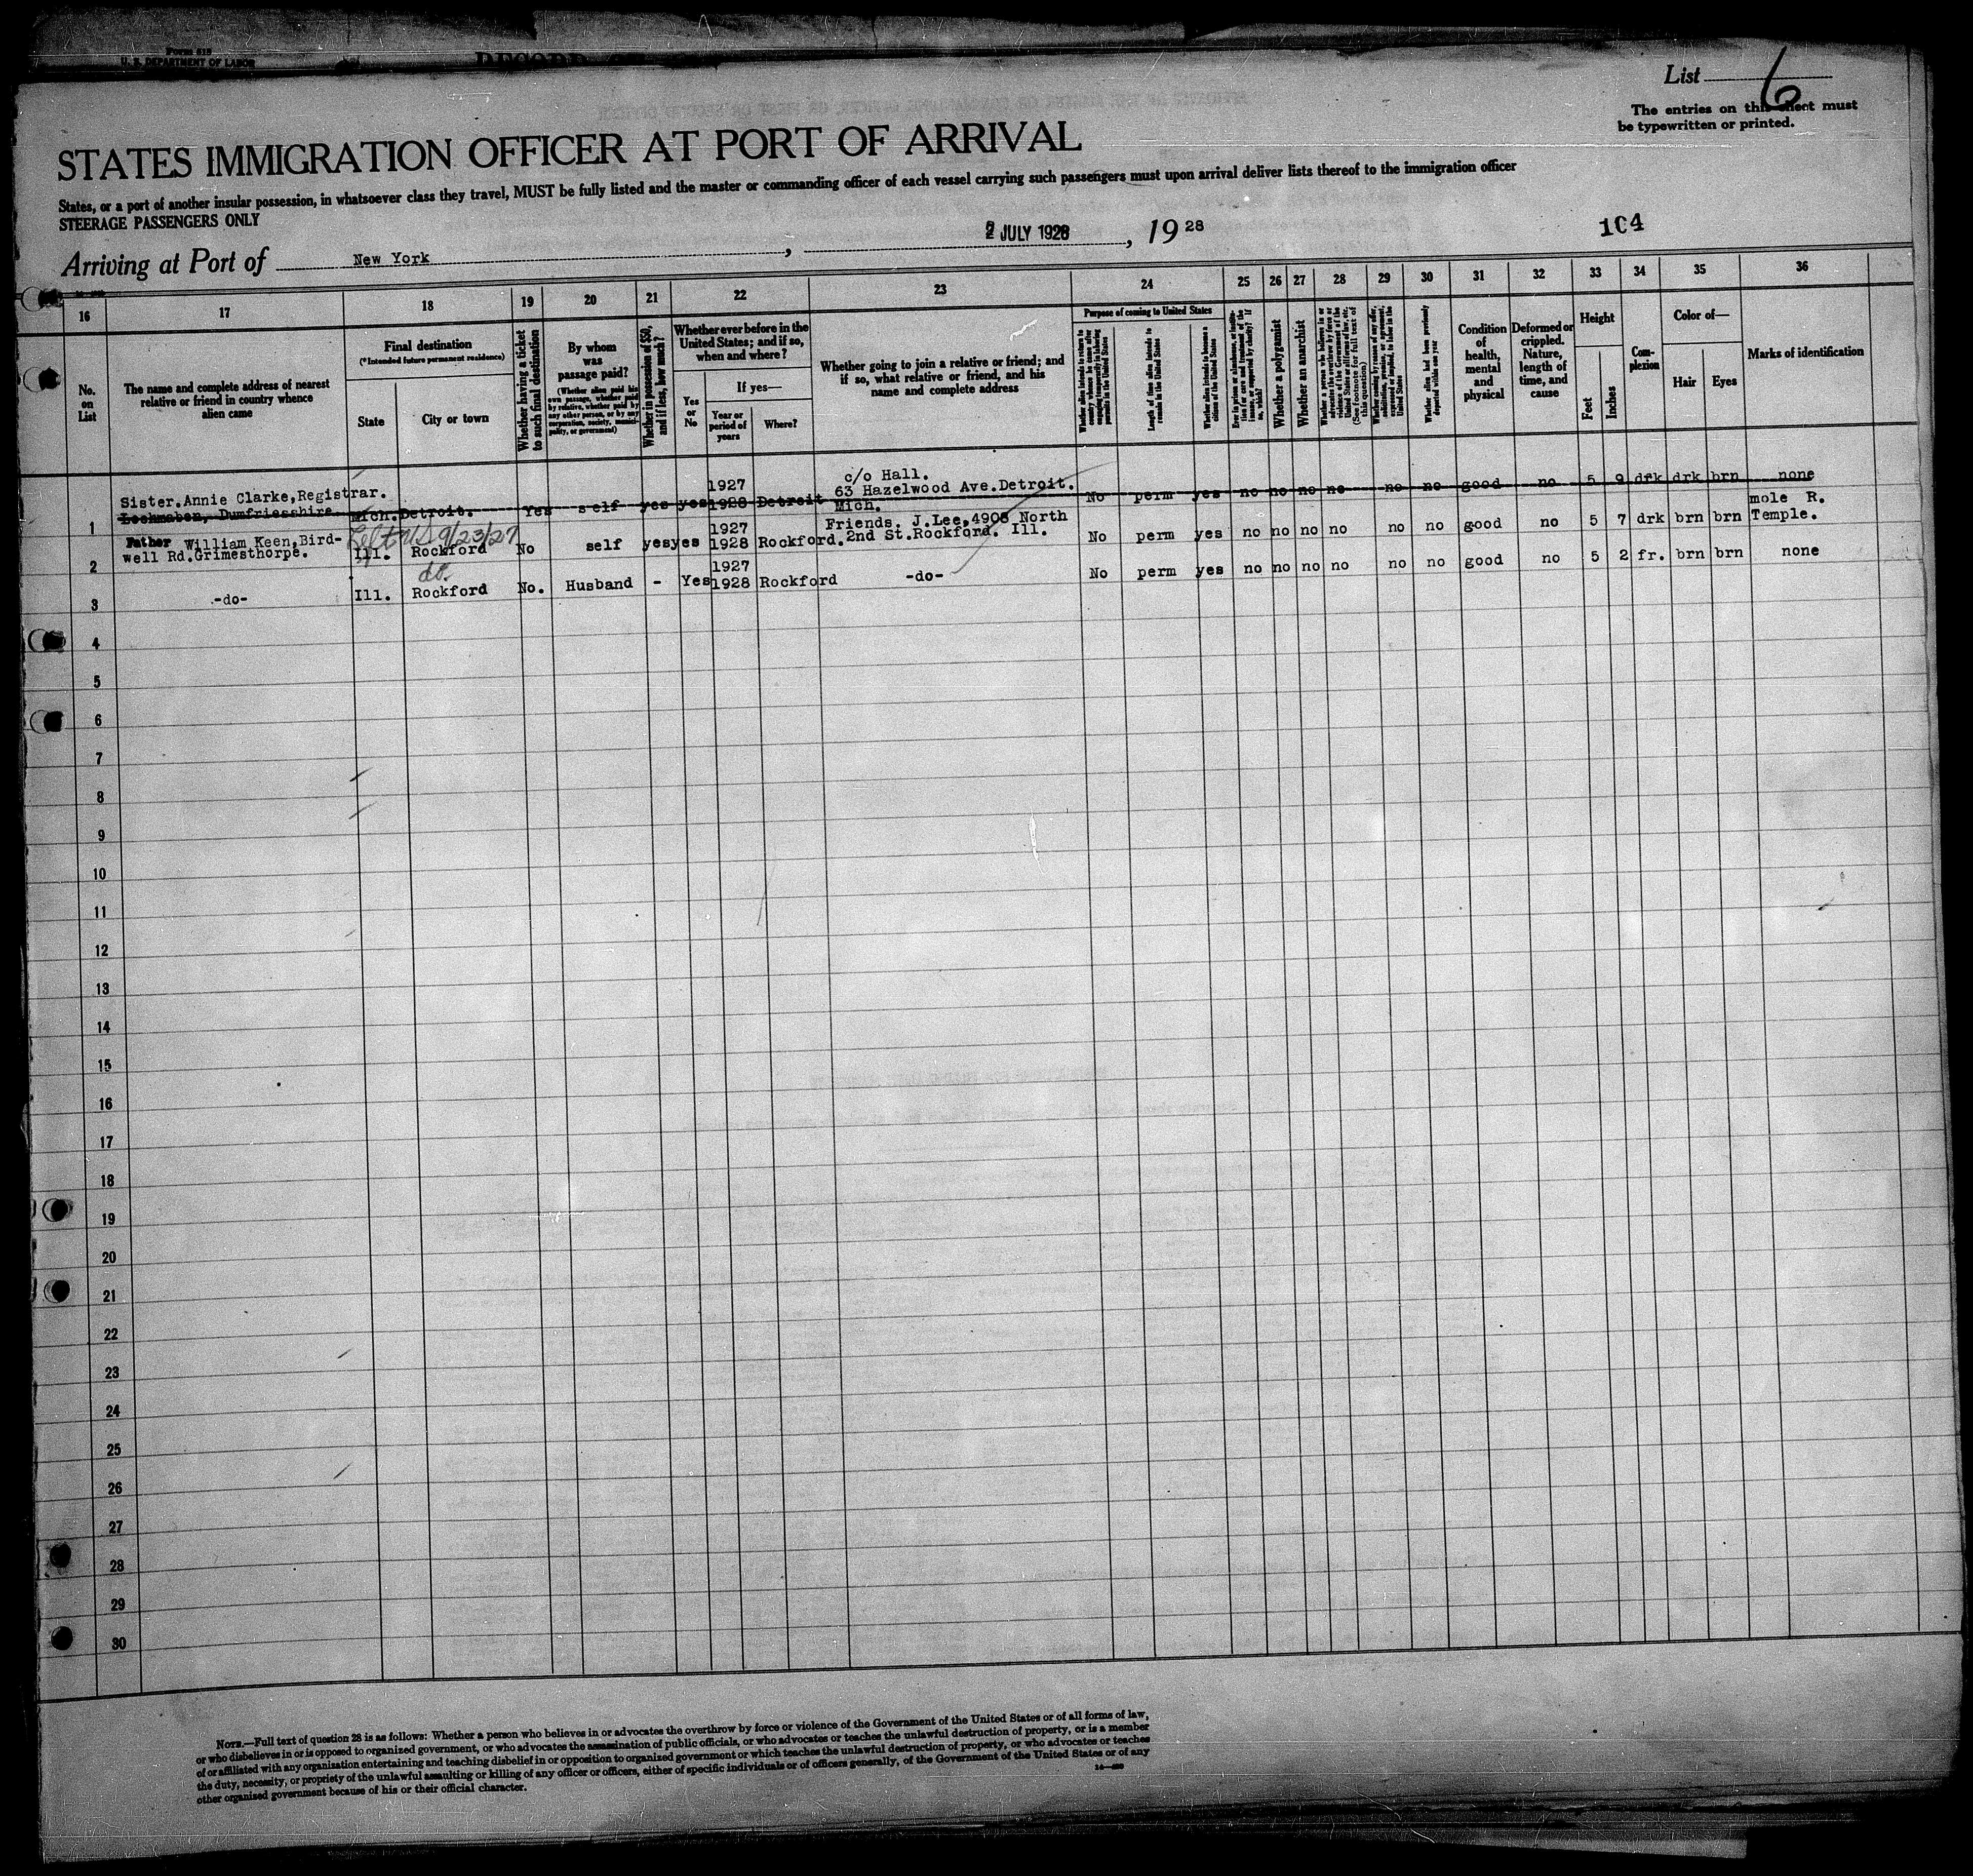 Form 615
U. S. DEPARTMENT OF LABOR
RECORD
List 6
The entries on this sheet must
be typewritten or printed.
STATES IMMIGRATION OFFICER AT PORT OF ARRIVAL
States, or a port of another insular possession, in whatsoever class they travel, MUST be fully listed and the master or commanding officer of each vessel carrying such passengers must upon arrival deliver lists thereof to the immigration officer
STEERAGE PASSENGERS ONLY
Arriving at Port of New York, 2 JULY 1928, 19 28
104
16 17 18 19 20 21 22 23 24 25 26 27 28 29 30 31 32 33 34 35 36
No. on List
The name and complete address of nearest
relative or friend in country whence
alien came
Final destination
(*Intended future permanent residence)
State
City or town
Whether having a ticket
to such final destination
By whom
was
passage paid?
(Whether alien paid his
own passage, whether paid
by relative, whether paid by
any other person, or by any
corporation, society, munici-
pality, or government)
Whether in possession of $50,
and if less, how much?
Whether ever before in the
United States; and if so,
when and where?
Yes or No
If yes—
Year or
period of
years
Where?
Whether going to join a relative or friend; and
if so, what relative or friend, and his
name and complete address
Purpose of coming to United States
Whether alien intends to return to
country whence he came after
engaging temporarily in laboring
pursuits in the United States
Length of time alien intends to
remain in the United States
Whether alien intends to become a
citizen of the United States
Ever in prison or almshouse, or institu-
tion for care and treatment of the
insane, or supported by charity? If
so, which?
Whether a polygamist
Whether an anarchist
Whether a person who believes in or
advocates the overthrow by force or
violence of the Government of the
United States or all forms of law, etc.
(See footnote for full text of
this question)
Whether coming by reason of any offer,
solicitation, promise, or agreement,
expressed or implied, to labor in the
United States
Whether alien had been previously
deported within one year
Condition
of
health,
mental
and
physical
Deformed or
crippled.
Nature,
length of
time, and
cause
Height
Feet
Inches
Com-
plexion
Color of—
Hair
Eyes
Marks of identification
1 Sister. Annie Clarke, Registrar.
Lochmaben, Dumfriesshire. Mich. Detroit. Yes self yes yes 1927
1928 Detroit c/o Hall.
63 Hazelwood Ave. Detroit.
Mich. No perm yes no no no no no no good no 5 9 drk drk brn none
Left US 9/23/27
2 Father William Keen, Bird-
well Rd. Grimesthorpe. Ill. Rockford No self yes yes 1927
1928 Rockford. Friends. J. Lee, 4908 North
2nd St. Rockford. Ill. No perm yes no no no no no no good no 5 7 drk brn brn mole R.
Temple.
do.
3 -do- Ill. Rockford No. Husband - Yes 1927
1928 Rockford -do- No perm yes no no no no no no good no 5 2 fr. brn brn none
4
5
6
7
8
9
10
11
12
13
14
15
16
17
18
19
20
21
22
23
24
25
26
27
28
29
30
NOTE.—Full text of question 28 is as follows: Whether a person who believes in or advocates the overthrow by force or violence of the Government of the United States or of all forms of law,
or who disbelieves in or is opposed to organized government, or who advocates the assassination of public officials, or who advocates or teaches the unlawful destruction of property, or is a member
of or affiliated with any organization entertaining and teaching disbelief in or opposition to organized government or which teaches the unlawful destruction of property, or who advocates or teaches
the duty, necessity, or propriety of the unlawful assaulting or killing of any officer or officers, either of specific individuals or of officers generally, of the Government of the United States or of any
other organized government because of his or their official character.